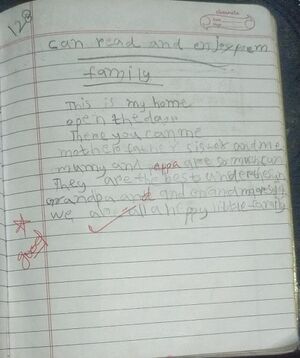 128
classmate
can read and enjoy poem
family
This is my home
open the door
There you can me
mother father sister and me
mumy and appa are so much can
They are the best under the sun
grandpa and grandma
we are all a happy little family
good